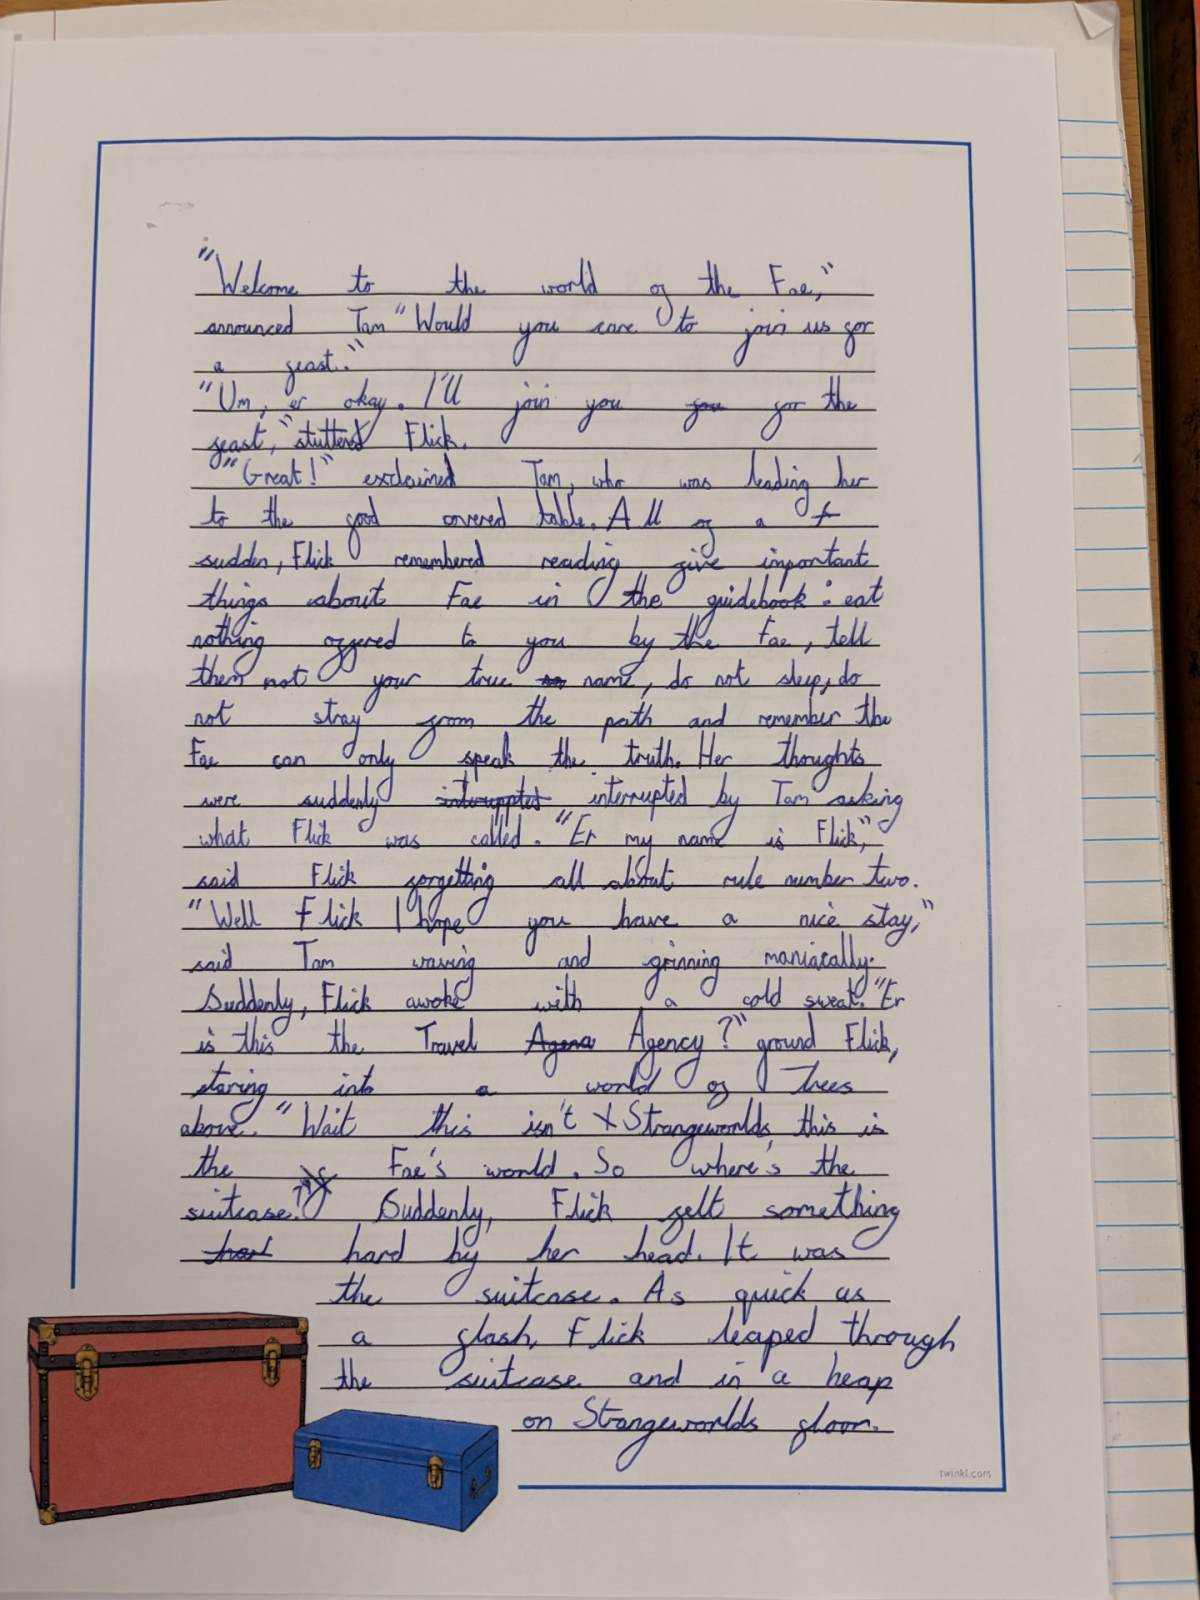 "Welcome to the world of the Fae,"
announced Tam "Would you care to join us for
a feast."
"Um, er okay. I'll join you for the
feast," stutterd Flick.
"Great!" exclaimed Tam, who was leading her
to the food covered table. All of a
sudden, Flick remembered reading five important
things about Fae in the guidebook: eat
nothing offered to you by the Fae, tell
them not your true name, do not sleep, do
not stray from the path and remember the
Fae can only speak the truth. Her thoughts
were suddenly interrupted by Tam asking
what Flick was called. "Er my name is Flick,"
said Flick forgetting all about rule number two.
"Well Flick I hope you have a nice stay,"
said Tam waving and grinning maniacally.
Suddenly, Flick awoke with a cold sweat. "Er
is this the Travel Agency?" ground Flick,
staring into a world of Trees
above. "Wait this isn't Strangeworlds, this is
the Fae's world. So where's the
suitcase?" Suddenly, Flick felt something
hard by her head. It was
the suitcase. As quick as
a flash, Flick leaped through
the suitcase and in a heap
on Strangeworlds floor.
twinkl.com